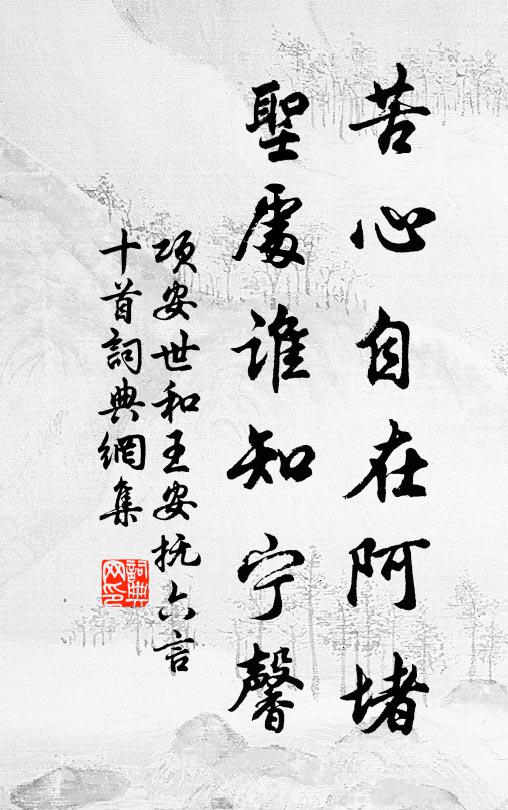 苦心自在阿堵
聖處誰知宁馨
项安世和王安抚六言
十首詞典網集
詞典
网印